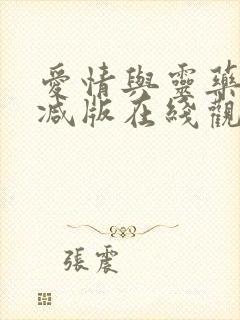 愛情與靈藥
减版在綫觀
張震